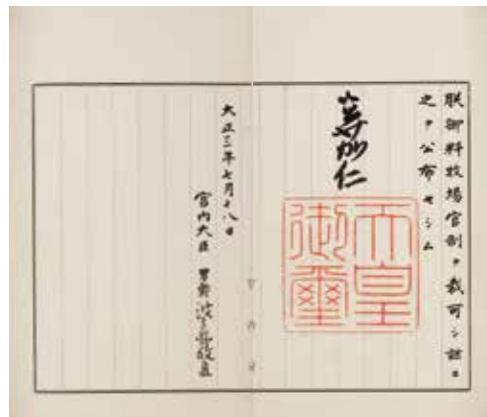 朕御料牧場官制ヲ裁可シ茲ニ
之ヲ公布セシム
嘉仁
天皇
御璽
大正三年七月十八日
宮内大臣 男爵 波多野敬直